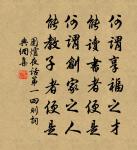 何謂享福之人
能讀書者便是
何謂創家之人
能教子者便是
圍爐夜話第一四則詞
典網集